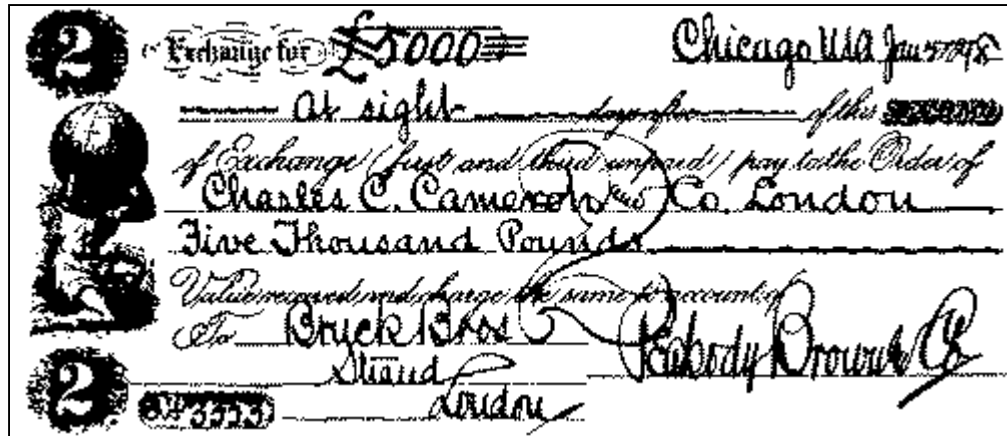 2 Exchange for £5000 Chicago USA Jan 5 1898
At sight days after of this SECOND
of Exchange (first and third unpaid) pay to the Order of
Charles C. Cameron & Co. London
Five Thousand Pounds
Value received and charge the same to account of
To Bryck Bros Peabody Brown & Co
Strand
2 London